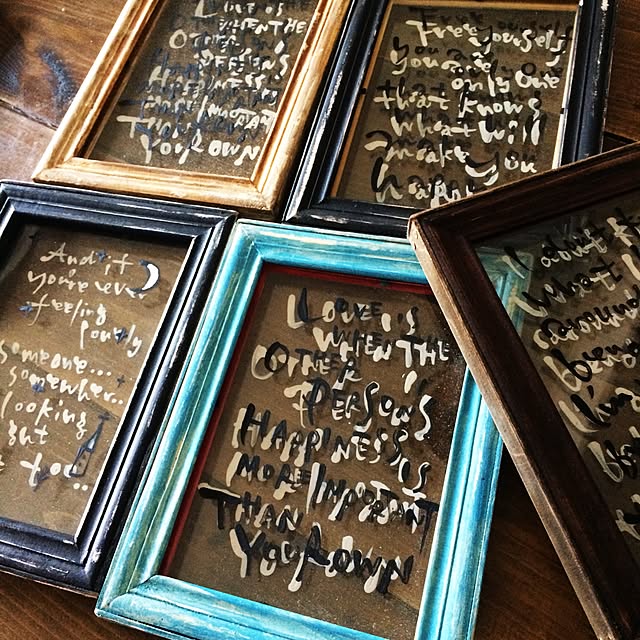 LOVE IS
WHEN THE
OTHER
PERSON'S
HAPPINESS IS
MORE IMPORTANT
THAN
YOUR OWN
Free yourself
you are the
only one
that knows
what will
make you
happy
And if
you're ever
feeling
lonely
someone...
somewhere..
looking
but
LOVE IS
WHEN THE
OTHER
PERSON'S
HAPPINESS IS
MORE IMPORTANT
THAN
YOUR OWN
what
around